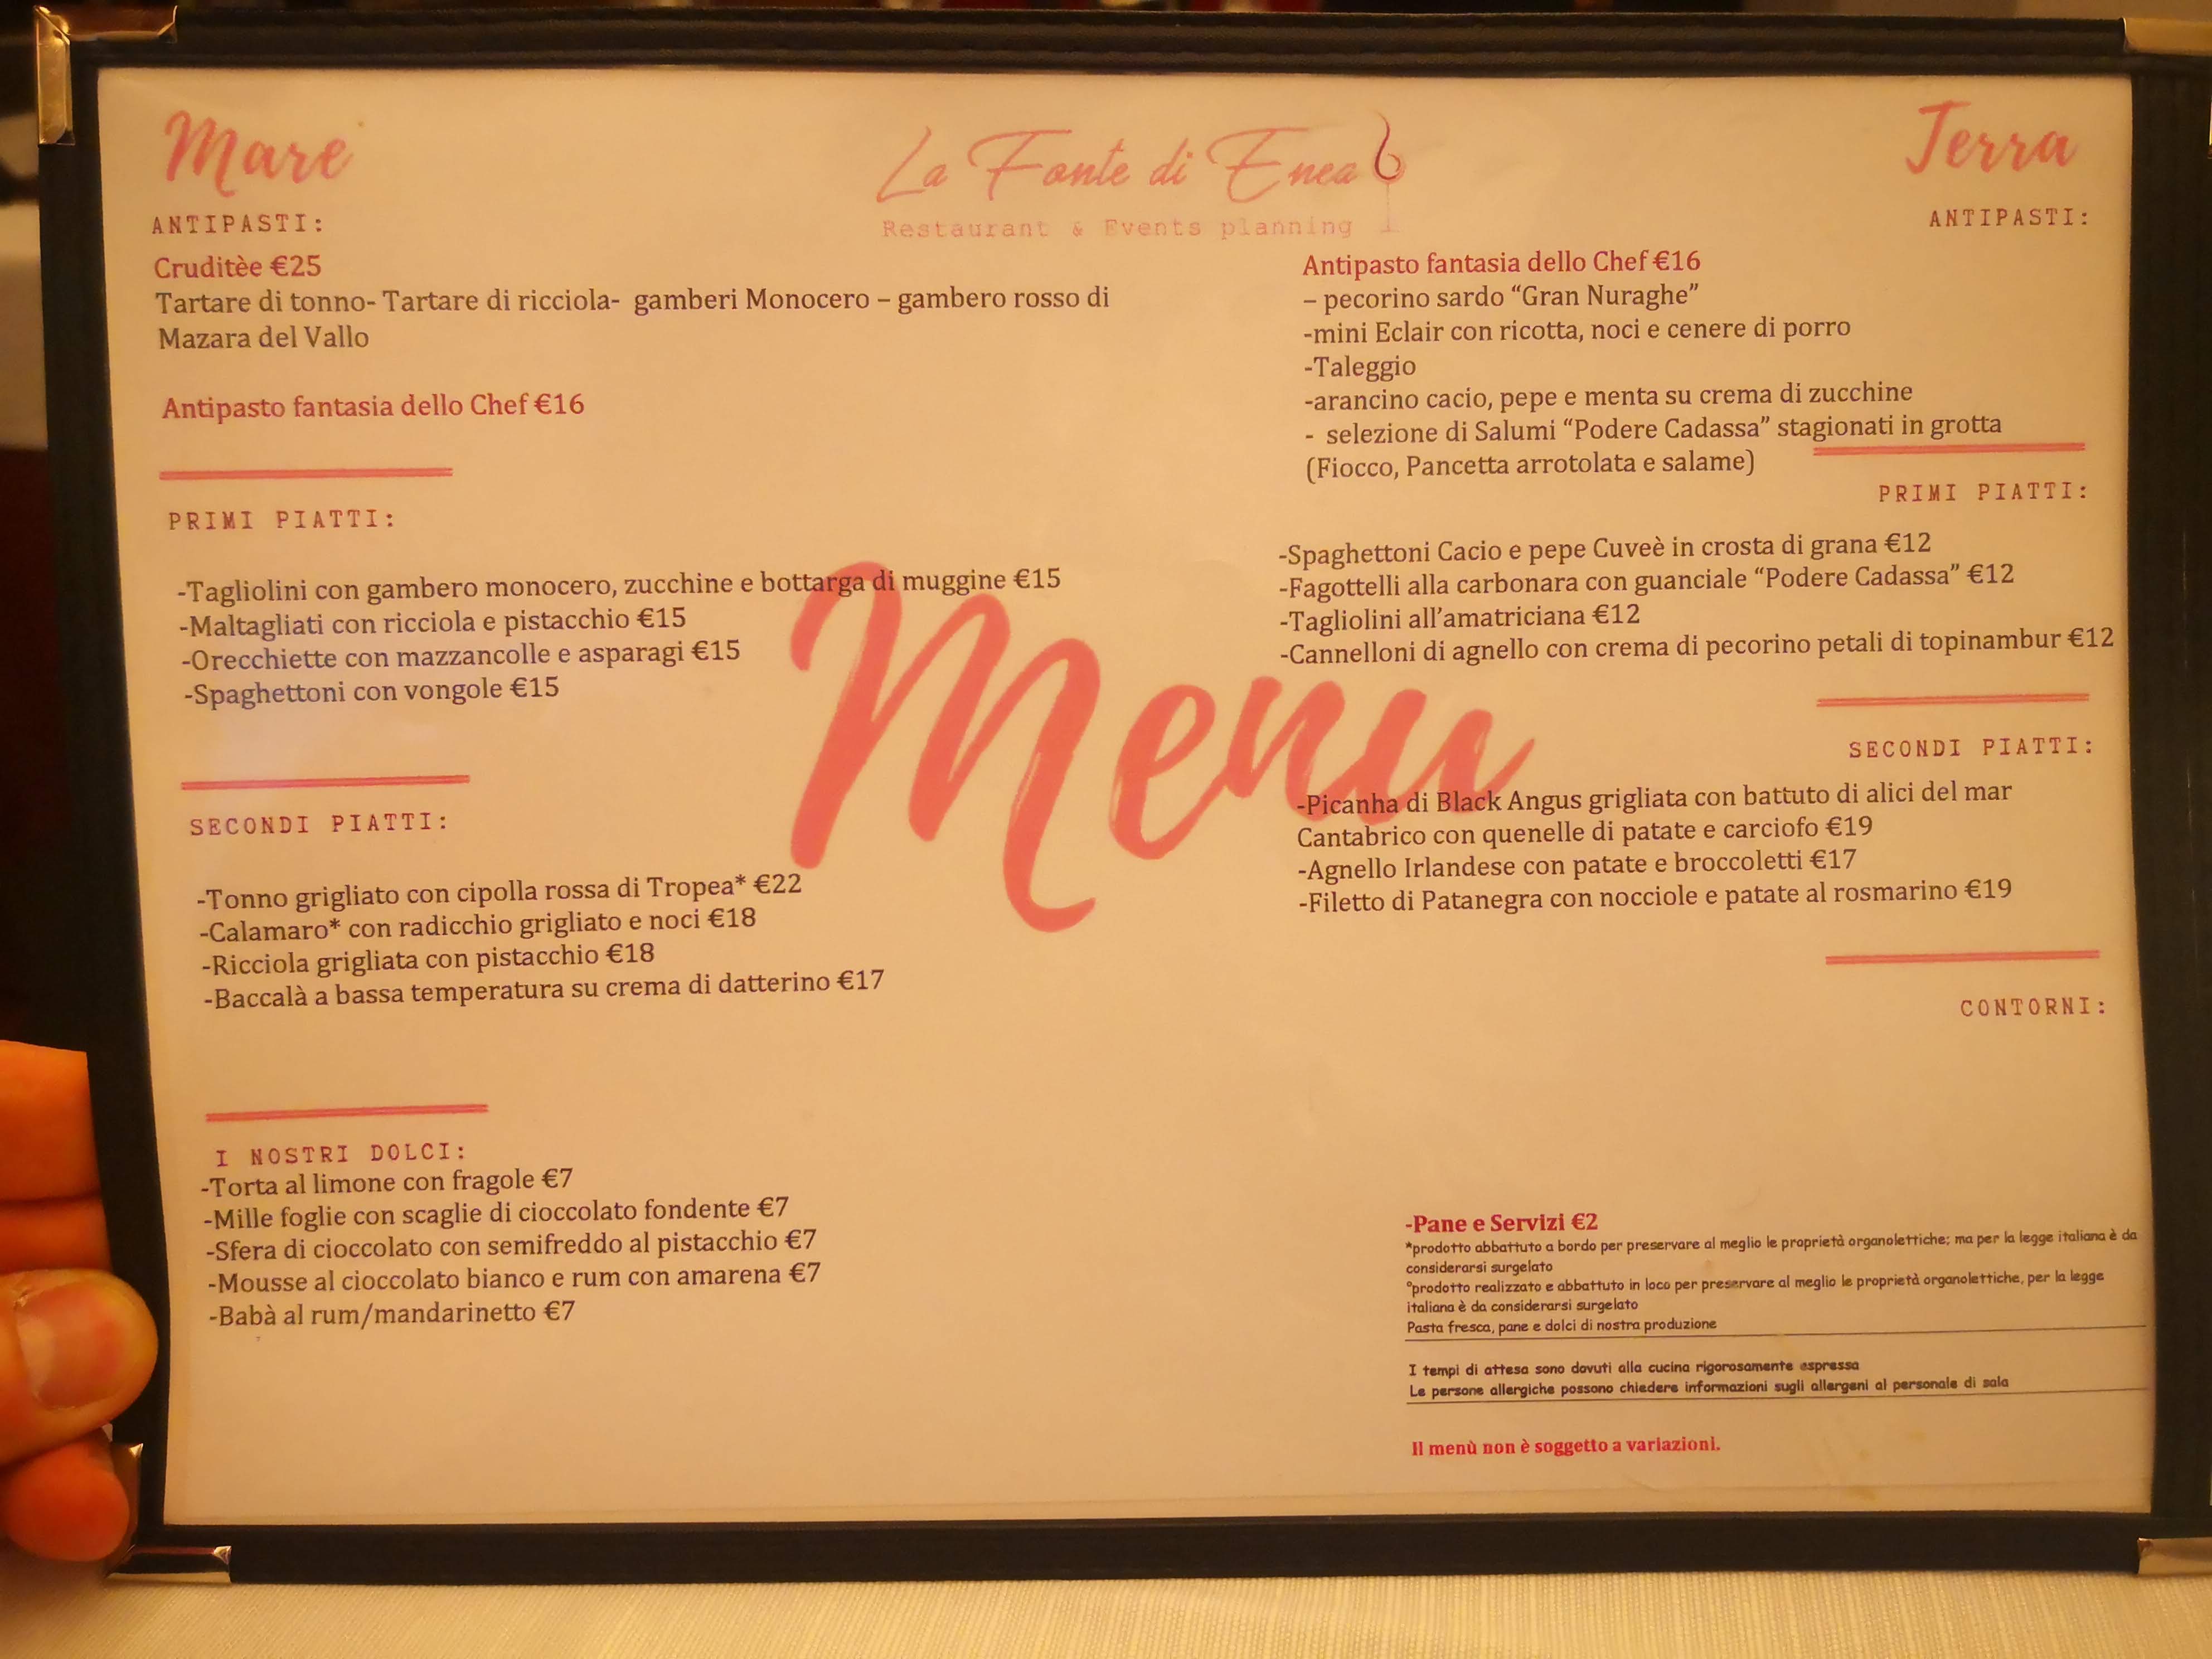 Mare
La Fonte di Enea
Restaurant & Events planning
Terra
ANTIPASTI:
Cruditèe €25
Tartare di tonno- Tartare di ricciola- gamberi Monocero – gambero rosso di
Mazara del Vallo
Antipasto fantasia dello Chef €16
PRIMI PIATTI:
-Tagliolini con gambero monocero, zucchine e bottarga di muggine €15
-Maltagliati con ricciola e pistacchio €15
-Orecchiette con mazzancolle e asparagi €15
-Spaghettoni con vongole €15
SECONDI PIATTI:
-Tonno grigliato con cipolla rossa di Tropea* €22
-Calamaro* con radicchio grigliato e noci €18
-Ricciola grigliata con pistacchio €18
-Baccalà a bassa temperatura su crema di datterino €17
I NOSTRI DOLCI:
-Torta al limone con fragole €7
-Mille foglie con scaglie di cioccolato fondente €7
-Sfera di cioccolato con semifreddo al pistacchio €7
-Mousse al cioccolato bianco e rum con amarena €7
-Babà al rum/mandarinetto €7
Menu
ANTIPASTI:
Antipasto fantasia dello Chef €16
– pecorino sardo “Gran Nuraghe”
-mini Eclair con ricotta, noci e cenere di porro
-Taleggio
-arancino cacio, pepe e menta su crema di zucchine
- selezione di Salumi “Podere Cadassa” stagionati in grotta
(Fiocco, Pancetta arrotolata e salame)
PRIMI PIATTI:
-Spaghettoni Cacio e pepe Cuveè in crosta di grana €12
-Fagottelli alla carbonara con guanciale “Podere Cadassa” €12
-Tagliolini all’amatriciana €12
-Cannelloni di agnello con crema di pecorino petali di topinambur €12
SECONDI PIATTI:
-Picanha di Black Angus grigliata con battuto di alici del mar
Cantabrico con quenelle di patate e carciofo €19
-Agnello Irlandese con patate e broccoletti €17
-Filetto di Patanegra con nocciole e patate al rosmarino €19
CONTORNI:
-Pane e Servizi €2
*prodotto abbattuto a bordo per preservare al meglio le proprietà organolettiche; ma per la legge italiana è da
considerarsi surgelato
°prodotto realizzato e abbattuto in loco per preservare al meglio le proprietà organolettiche, per la legge
italiana è da considerarsi surgelato
Pasta fresca, pane e dolci di nostra produzione
I tempi di attesa sono dovuti alla cucina rigorosamente espressa
Le persone allergiche possono chiedere informazioni sugli allergeni al personale di sala
Il menù non è soggetto a variazioni.